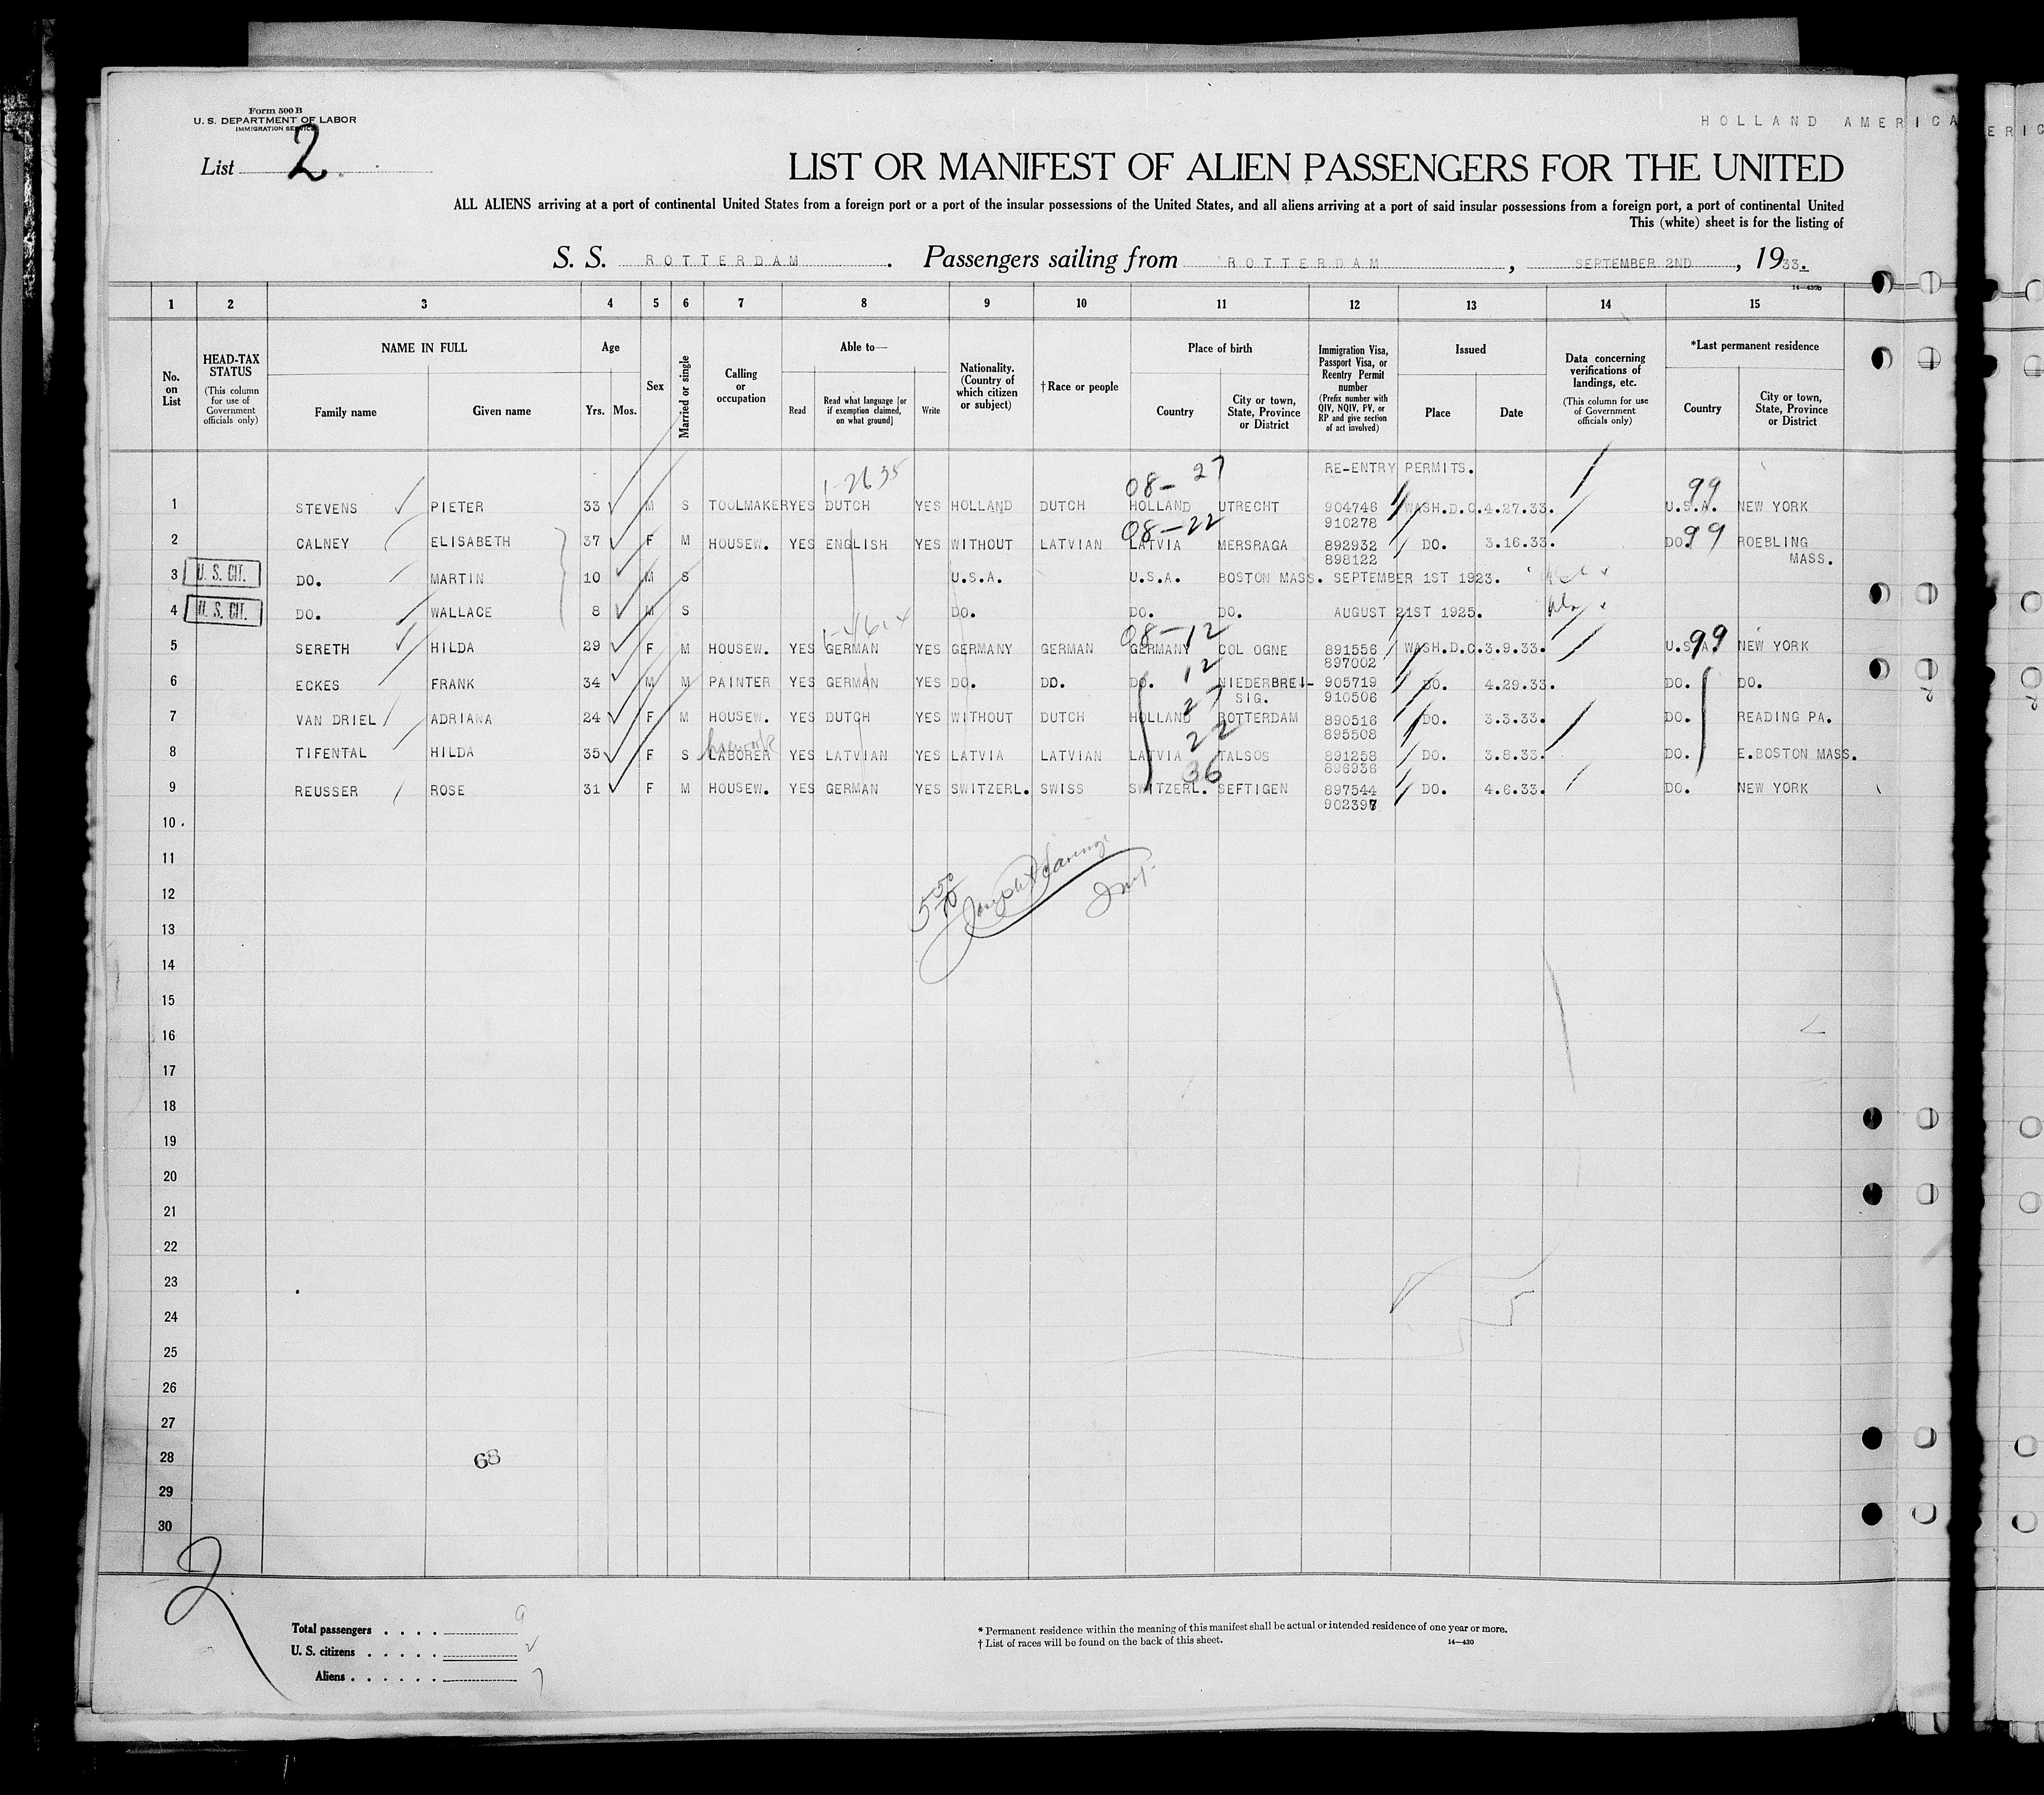 Form 500 B
U. S. DEPARTMENT OF LABOR
IMMIGRATION SERVICE
HOLLAND AMERICA
ERIC
List 2
LIST OR MANIFEST OF ALIEN PASSENGERS FOR THE UNITED
ALL ALIENS arriving at a port of continental United States from a foreign port or a port of the insular possessions of the United States, and all aliens arriving at a port of said insular possessions from a foreign port, a port of continental United
This (white) sheet is for the listing of
S. S. ROTTERDAM. Passengers sailing from ROTTERDAM, SEPTEMBER 2ND, 1933.
14—430b
1 2 3 4 5 6 7 8 9 10 11 12 13 14 15
No. on List
HEAD-TAX STATUS (This column for use of Government officials only)
NAME IN FULL
Family name Given name
Age
Yrs. Mos.
Sex
Married or single
Calling or occupation
Able to—
Read Read what language [or if exemption claimed, on what ground] Write
Nationality. (Country of which citizen or subject)
† Race or people
Place of birth
Country City or town, State, Province or District
Immigration Visa, Passport Visa, or Reentry Permit number (Prefix number with QIV, NQIV, PV, or RP and give section of act involved)
Issued
Place Date
Data concerning verifications of landings, etc. (This column for use of Government officials only)
*Last permanent residence
Country City or town, State, Province or District
RE-ENTRY PERMITS.
1-2635 08-27 99
1 STEVENS PIETER 33 M S TOOLMAKER YES DUTCH YES HOLLAND DUTCH HOLLAND UTRECHT 904746 WASH.D.C. 4.27.33. U.S.A. NEW YORK
910278
08-22 99
2 CALNEY ELISABETH 37 F M HOUSEW. YES ENGLISH YES WITHOUT LATVIAN LATVIA MERSRAGA 892932 DO. 3.16.33. DO. ROEBLING
898122 MASS.
3 U. S. CIT. DO. MARTIN 10 M S U.S.A. U.S.A. BOSTON MASS. SEPTEMBER 1ST 1923.
4 U. S. CIT. DO. WALLACE 8 M S DO. DO. DO. AUGUST 21ST 1925.
08-12 99
5 SERETH HILDA 29 F M HOUSEW. YES GERMAN YES GERMANY GERMAN GERMANY COLOGNE 891556 WASH.D.C. 3.9.33. U.S.A. NEW YORK
897002
12
6 ECKES FRANK 34 M M PAINTER YES GERMAN YES DO. DO. DO. NIEDERBREI- 905719 DO. 4.29.33. DO. DO.
SIG. 910506
27
7 VAN DRIEL ADRIANA 24 F M HOUSEW. YES DUTCH YES WITHOUT DUTCH HOLLAND ROTTERDAM 890516 DO. 3.3.33. DO. READING PA.
895508
22
housework
8 TIFENTAL HILDA 35 F S LABORER YES LATVIAN YES LATVIA LATVIAN LATVIA TALSOS 891258 DO. 3.8.33. DO. E.BOSTON MASS.
896936
36
9 REUSSER ROSE 31 F M HOUSEW. YES GERMAN YES SWITZERL. SWISS SWITZERL. SEFTIGEN 897544 DO. 4.6.33. DO. NEW YORK
902397
10
11
12
13
14
15
16
17
18
19
20
21
22
23
24
25
26
27
28 68
29
30
2
Total passengers 9
U. S. citizens 2
Aliens 7
* Permanent residence within the meaning of this manifest shall be actual or intended residence of one year or more.
† List of races will be found on the back of this sheet.
14—430